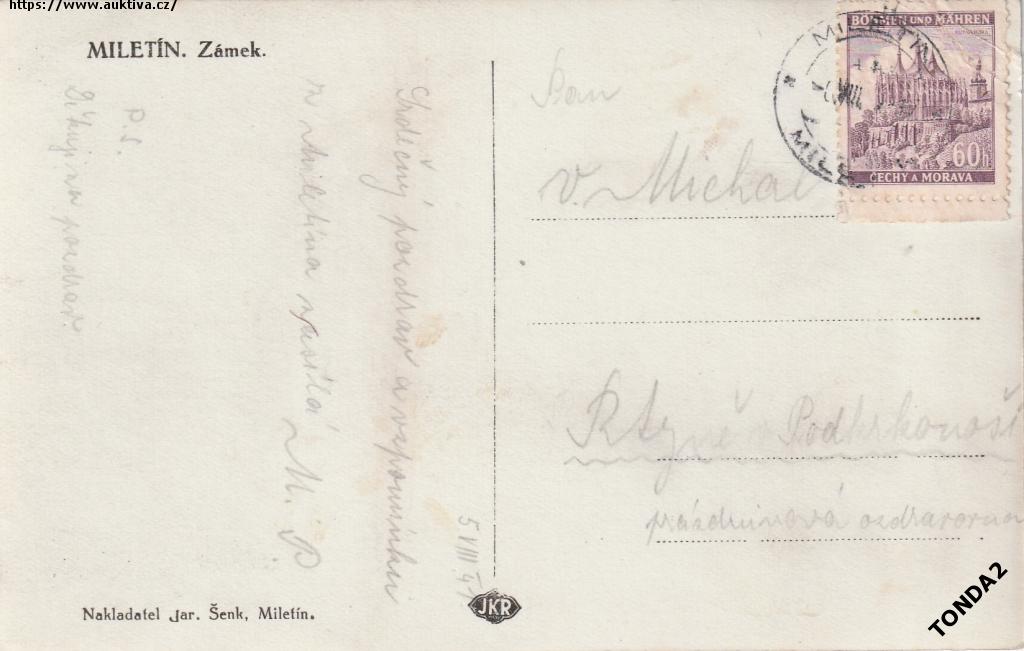 https://www.auktiva.cz/
MILETÍN. Zámek.
P.S.
Děkuji za pozdrav.
Srdečný pozdrav a vzpomínku
z Miletína zasílá M. P.
5 VIII. 41
Pan
V. Michal
Rtyně v Podkrkonoší
prázdninová ozdravovna
BÖHMEN UND MÄHREN
60h
ČECHY A MORAVA
MILETÍN
JKR
Nakladatel Jar. Šenk, Miletín.
TONDA2